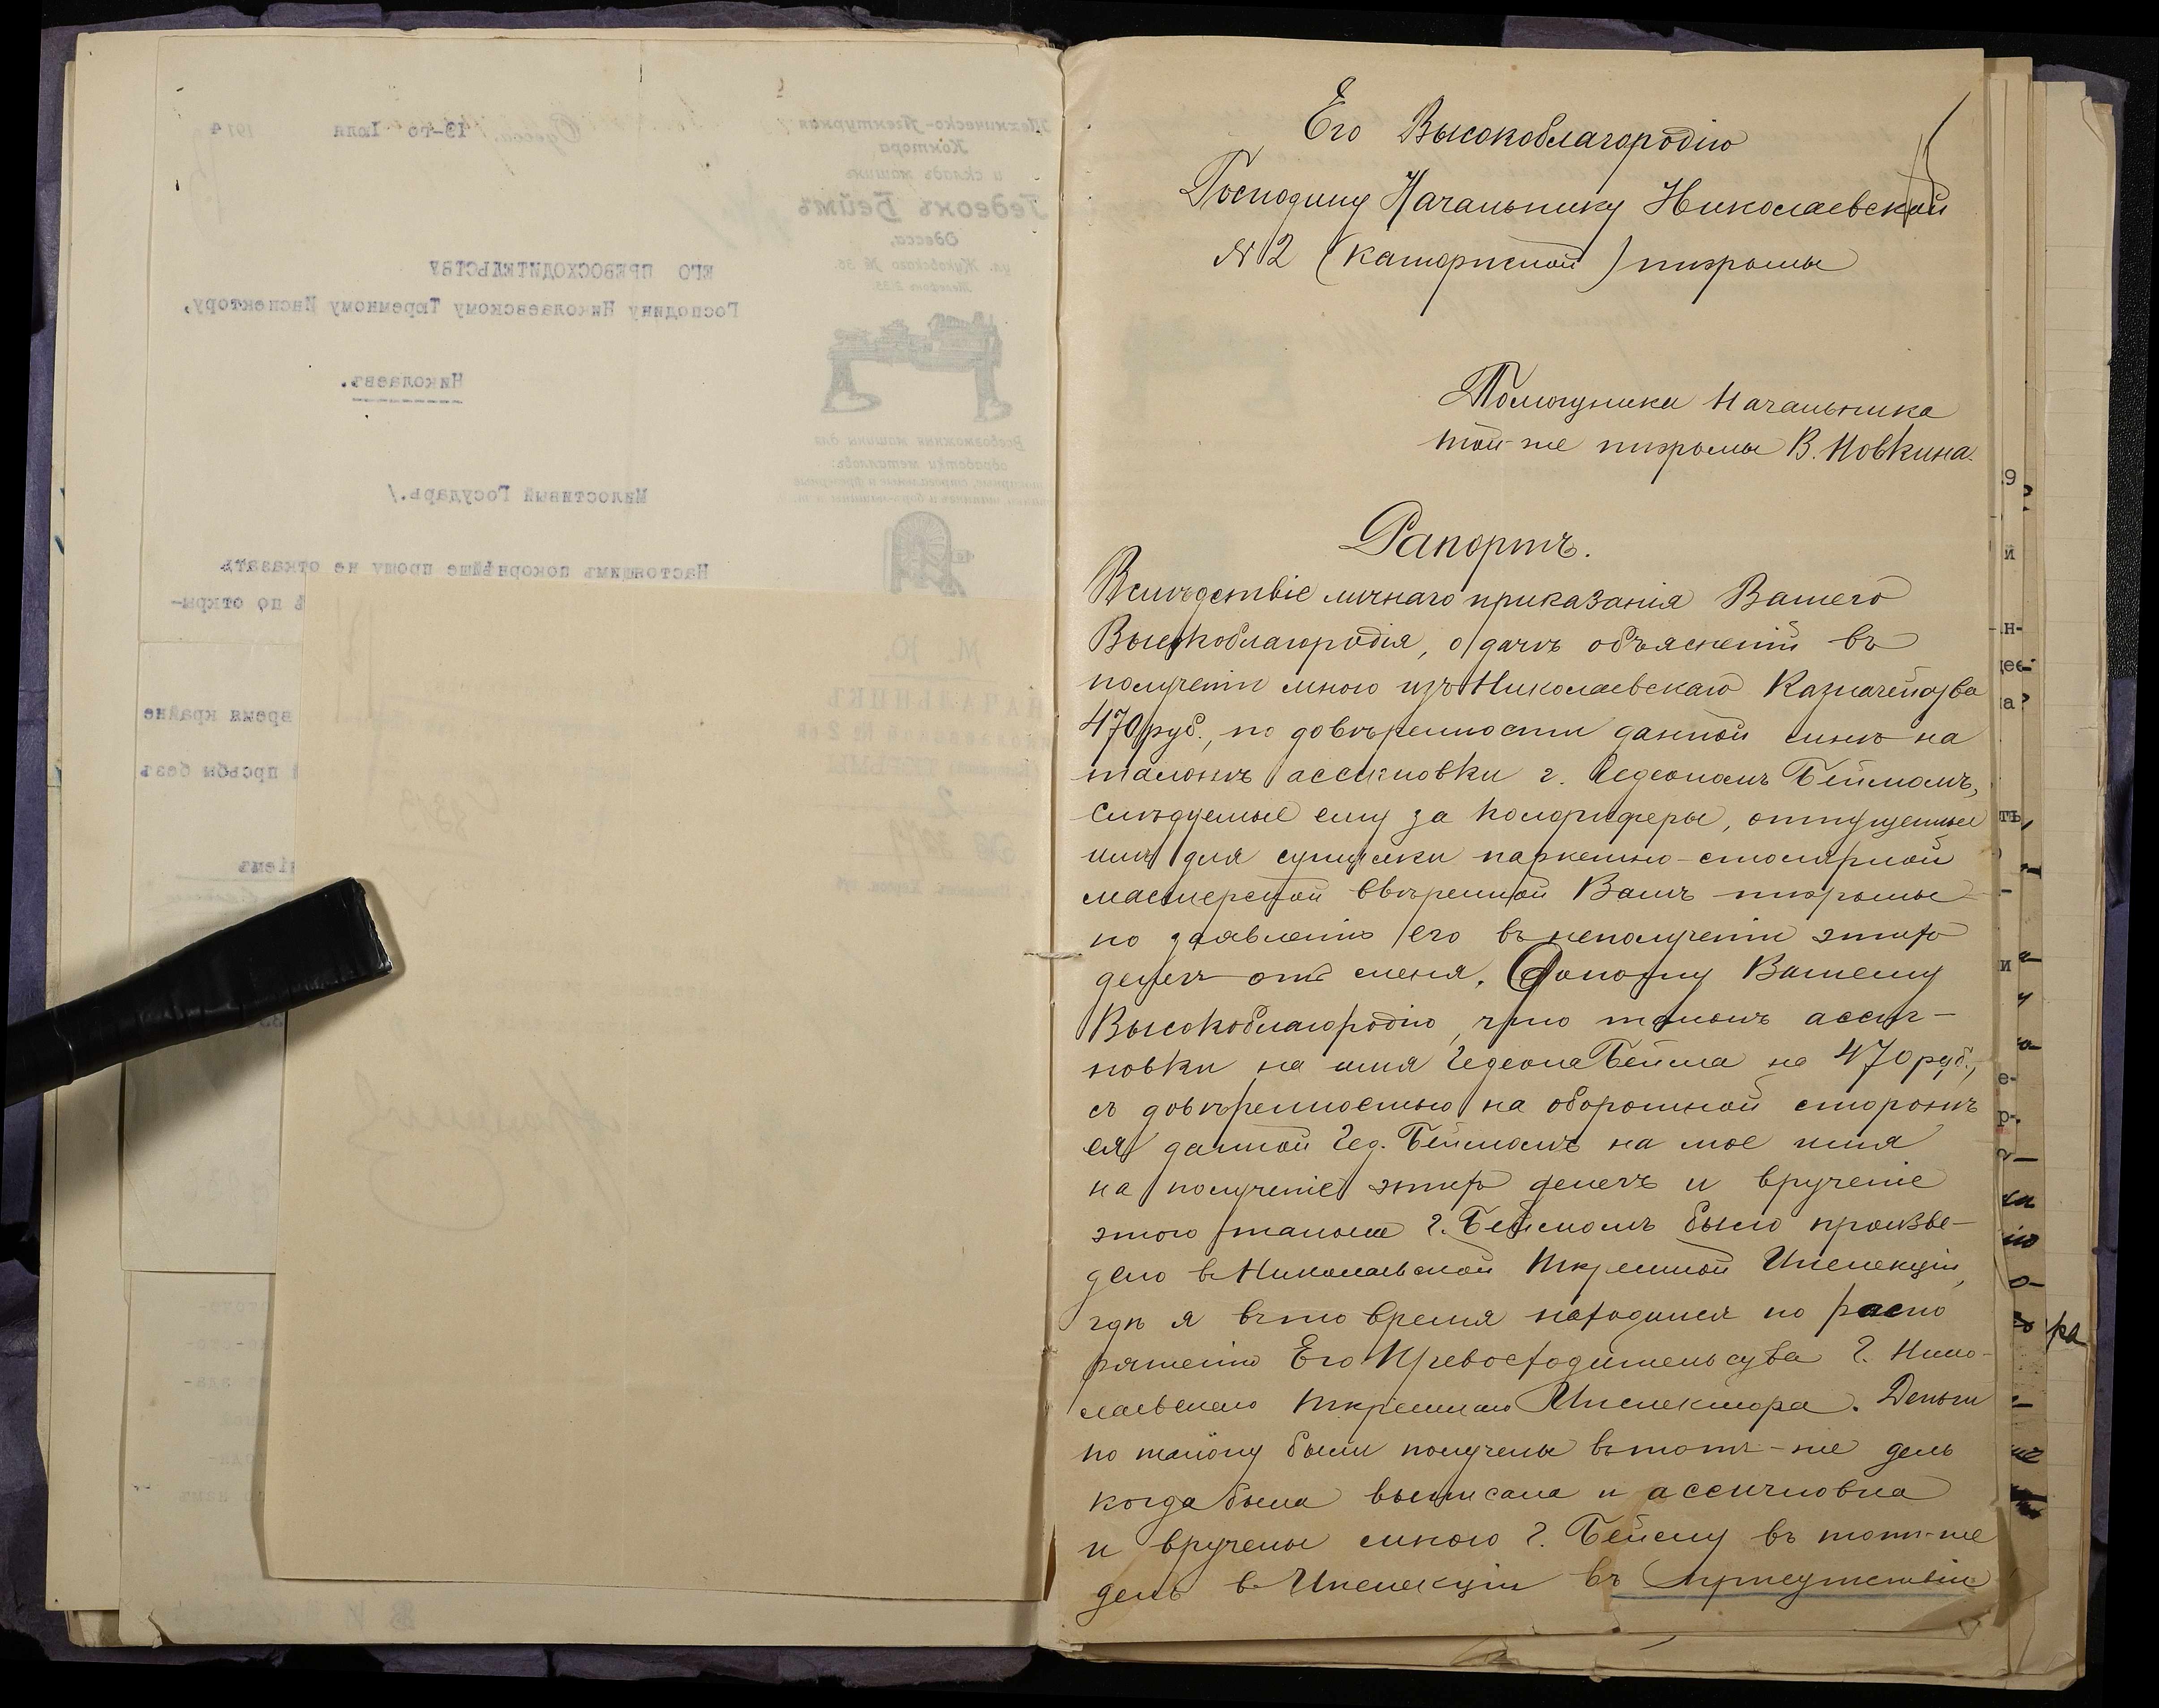 Его Высокоблагородію
Господину Начальнику Николаевской
№ 2 (каторжной) тюрьмы
Помощника Начальника
той-же тюрьмы В. Новкина.
Рапортъ.
Вслѣдствіе личнаго приказанія Вашего
Высокоблагородія, о дачѣ объясненій въ
полученіи мною изъ Николаевскаго Казначейства
470 руб., по довѣренности данной мнѣ на
талонѣ ассигновки г. Гедеономъ Беймомъ,
слѣдуемые ему за калориферы, отпущенные
имъ для сушилки паркетно-столярной
мастерской ввѣренной Вамъ тюрьмы
по заявленію его въ неполученіи этихъ
денегъ отъ меня. Доношу Вашему
Высокоблагородію, что талонъ ассиг-
новки на имя Гедеона Бейма на 470 руб.,
съ довѣренностью на оборотной сторонѣ
ея данной Гед. Беймомъ на мое имя
на полученіе этихъ денегъ и врученіе
этого талона г. Беймомъ было произве-
дено в Николаевской Тюремной Инспекціи,
гдѣ я въ то время находился по распо
ряженію Его Превосходительства г. Нико-
лаевскаго Тюремнаго Инспектора. Деньги
по талону были получены въ тотъ-же день
когда была выписана и ассигновка
и вручены мною г. Бейму въ тотъ-же
день в Инспекціи въ присутствіи
13-го Іюля 1914
Техническо-Агентурная
Контора
и складъ машинъ
Гедеонъ Беймъ
Одесса,
ул. Жуковскаго № 36.
ЕГО ПРЕВОСХОДИТЕЛЬСТВУ
Господину Николаевскому Тюремному Инспектору,
Николаевъ.
Всевозможныя машины для
обработки металловъ:
Милостивый Государь./
Настоящимъ покорнѣйше прошу не отказать
по откры-
М. Ю.
НАЧАЛЬНИКЪ
время крайне
просьбы безъ